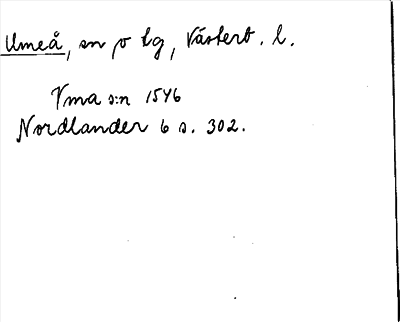 Umeå, sn o lg, Västerb. l.
Vma s:n 1546
Nordlander 6 s. 302.